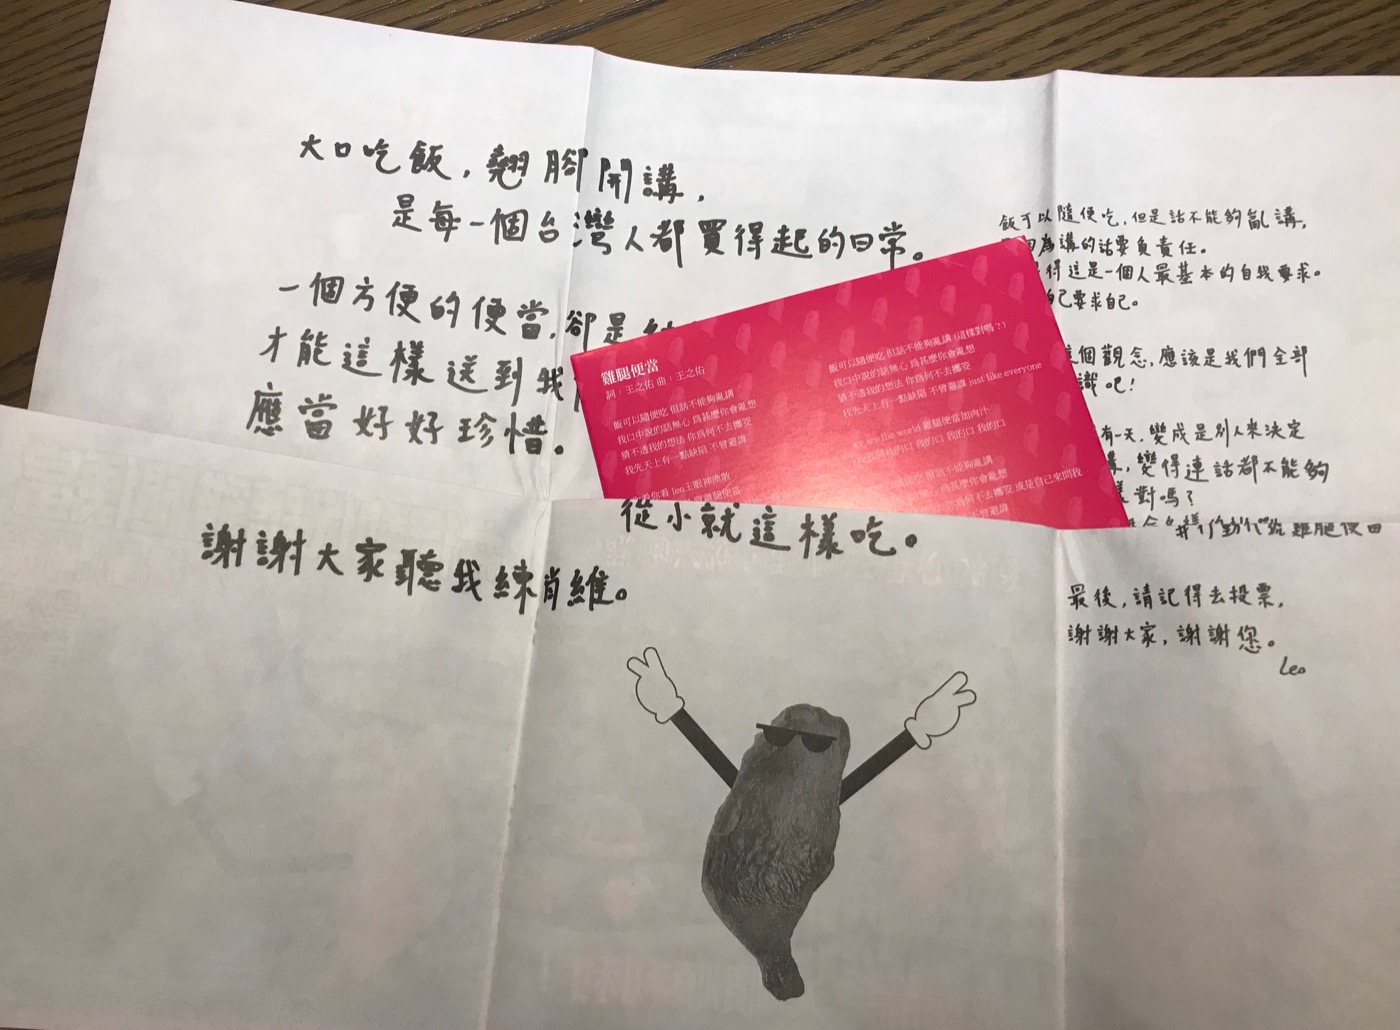 大口吃飯，翹腳開講，
是每一個台灣人都買得起的日常。
一個方便的便當，卻是
才能這樣送到我
應當好好珍惜。
謝謝大家聽我練肖維。
從小就這樣吃。
雞腿便當
詞：王之佑 曲：王之佑
飯可以隨便吃 但話不能夠亂講
我口中說的話無心 為甚麼你會亂想
猜不透我的想法 你為何不去挪耍
我先天上有一點缺陷 不曾避諱
看你看 leo王眼神渙散
飯可以隨便吃 但話不能夠亂講 (這樣對嗎？)
我口中說的話無心 為甚麼你會亂想
猜不透我的想法 你為何不去
我先天上有一點缺陷 不曾避諱 just like everyone
we are the world 雞腿便當加肉汁
我的口 我的口 我的口
話不能夠亂講
為甚麼你會亂想
或是自己來問我
不曾避諱
飯可以隨便吃，但是話不能夠亂講，
因為講的話要負責任。
得這是一個人最基本的自我要求。
己要求自己。
這個觀念，應該是我們全部
識吧！
有一天，變成是別人來決定
講，變得連話都不能夠
樣對嗎？
雞腿便
最後，請記得去投票，
謝謝大家，謝謝您。
Leo